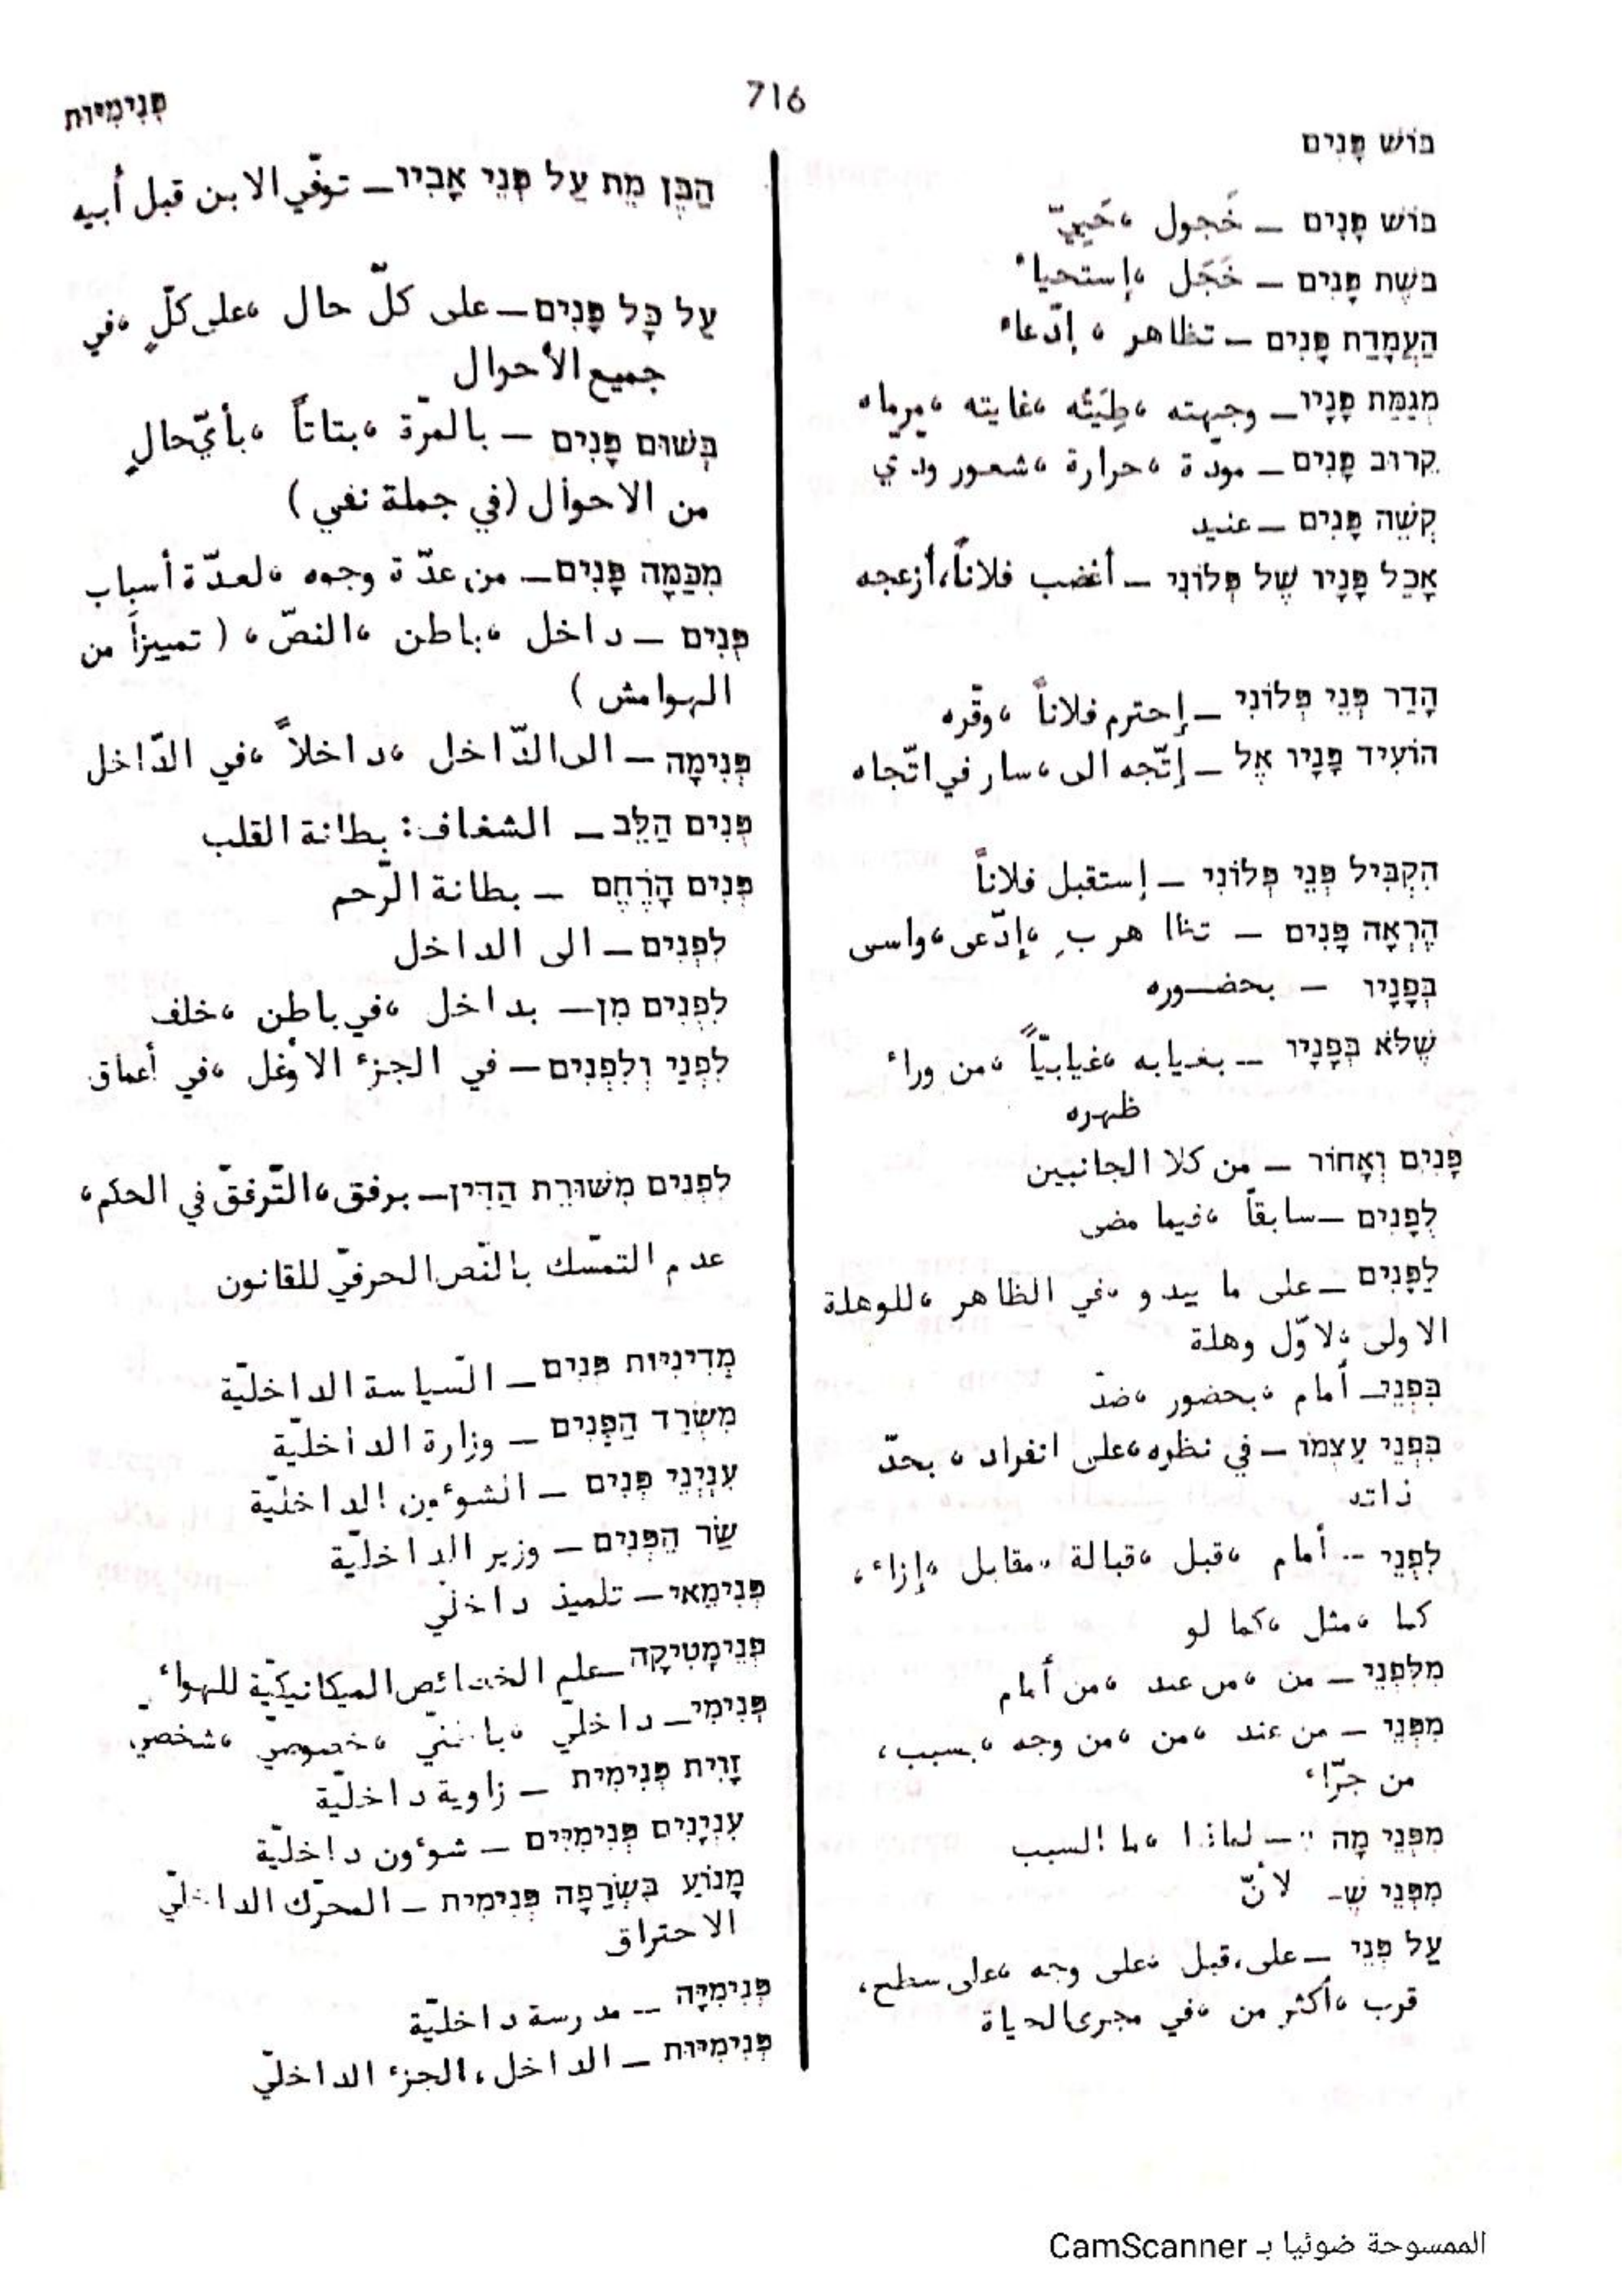 פְּנִימִיּוּת
716
בּוֹשׁ פָּנִים
בּוֹשׁ פָּנִים – خَجول ، حَيِيّ
בֹּשֶׁת פָּנִים – خَجَل ، إستحياء
הַעֲמָדַת פָּנִים – تظاهر ، إدّعاء
מְגַמַּת פָּנָיו – وجهته ، طِيَتُه ، غايته ، مرماه
קֵרוּב פָּנִים – مودّة ، حرارة ، شعور ودّي
קְשֵׁה פָּנִים – عنيد
אָכַל פָּנָיו שֶׁל פְּלוֹנִי – أغضب فلاناً، أزعجه
הָדַר פְּנֵי פְּלוֹנִי – إحترم فلاناً ، وقّره
הוֹעִיד פָּנָיו אֶל – إتّجه الى ، سار في اتّجاه
הִקְבִּיל פְּנֵי פְּלוֹנִי – إستقبل فلاناً
הֶרְאָה פָּנִים – تظاهر بِ ، إدّعى ، واسى
בְּפָנָיו – بحضوره
שֶׁלֹּא בְּפָנָיו – بغيابه ، غيابيّاً ، من وراء
ظهره
פָּנִים וְאָחוֹר – من كلا الجانبين
לְפָנִים – سابقاً ، فيما مضى
לַפָּנִים – على ما يبدو ، في الظاهر ، للوهلة
الاولى ، لاوّل وهلة
בִּפְנֵי – أمام ، بحضور ، ضدّ
בִּפְנֵי עַצְמוֹ – في نظره ، على انفراد ، بحدّ
ذاته
לִפְנֵי – أمام ، قبل ، قبالة ، مقابل ، إزاء ،
كما ، مثل ، كما لو
מִלִּפְנֵי – من ، من عند ، من أمام
מִפְּנֵי – من عند ، من ، من وجه ، بسبب ،
من جرّاء
מִפְּנֵי מָה – لماذا ، ما السبب
מִפְּנֵי שֶׁ- لأنّ
עַל פְּנֵי – على، قبل ، على وجه ، على سطح ،
قرب ، أكثر من ، في مجرى الحياة
הַבֵּן מֵת עַל פְּנֵי אָבִיו – توفّي الابن قبل أبيه
עַל כָּל פָּנִים – على كلّ حال ، على كلٍّ ، في
جميع الأحوال
בְּשׁוּם פָּנִים – بالمرّة ، بتاتاً ، بأيّ حالٍ
من الاحوال (في جملة نفي)
מִכַּמָּה פָּנִים – من عدّة وجوه ، لعدّة أسباب
פְּנִים – داخل ، باطن ، النصّ ، (تمييزاً من
الهوامش)
פְּנִימָה – الى الدّاخل ، داخلاً ، في الدّاخل
פְּנִים הַלֵּב – الشغاف: بطانة القلب
פְּנִים הָרֶחֶם – بطانة الرّحم
לִפְנִים – الى الداخل
לִפְנִים מִן – بداخل ، في باطن ، خلف
לִפְנַי וְלִפְנִים – في الجزء الاوْغل ، في أعماق
לִפְנִים מִשּׁוּרַת הַדִּין – برفق ، التّرفّق في الحكم ،
عدم التمسّك بالنّص الحرفيّ للقانون
מְדִינִיּוּת פְּנִים – السّياسة الداخليّة
מִשְׂרַד הַפְּנִים – وزارة الداخليّة
עִנְיְנֵי פְּנִים – الشوءون الداخليّة
שַׂר הַפְּנִים – وزير الداخليّة
פְּנִימַאי – تلميذ داخلّي
פְּנֵימָטִיקָה – علم الخصائص الميكانيكيّة للهواء
פְּנִימִי – داخليّ ، باطنيّ ، خصوصيّ ، شخصيّ
זָוִית פְּנִימִית – زاوية داخليّة
עִנְיָנִים פְּנִימִיִּים – شوءون داخليّة
מָנוֹעַ בִּשְׂרֵפָה פְּנִימִית – المحرّك الداخليّ
الاحتراق
פְּנִימִיָּה – مدرسة داخليّة
פְּנִימִיּוּת – الداخل، الجزء الداخليّ
الممسوحة ضوئيا بـ CamScanner